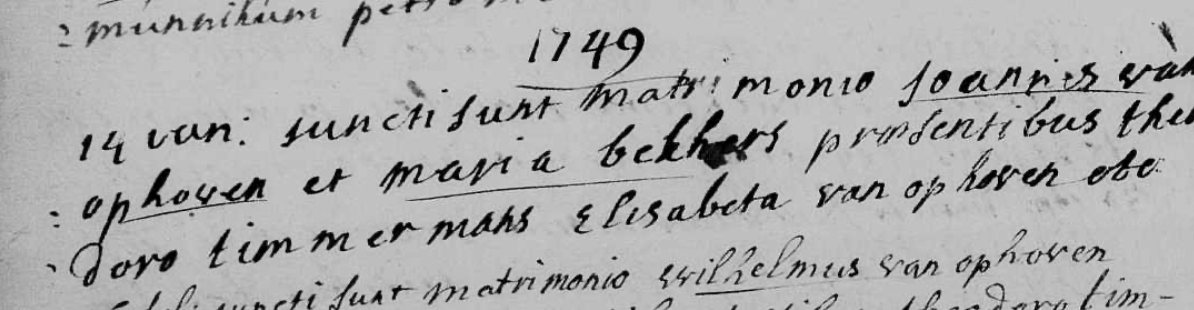 : munnikum petro
1749
14 ian: iuncti sunt matrimonio Joannes van
: ophoven et maria bekkers præsentibus the
doro timmermans Elisabeta van ophoven etc
iuncti sunt matrimonio wilhelmus van ophoven
theodoro tim-